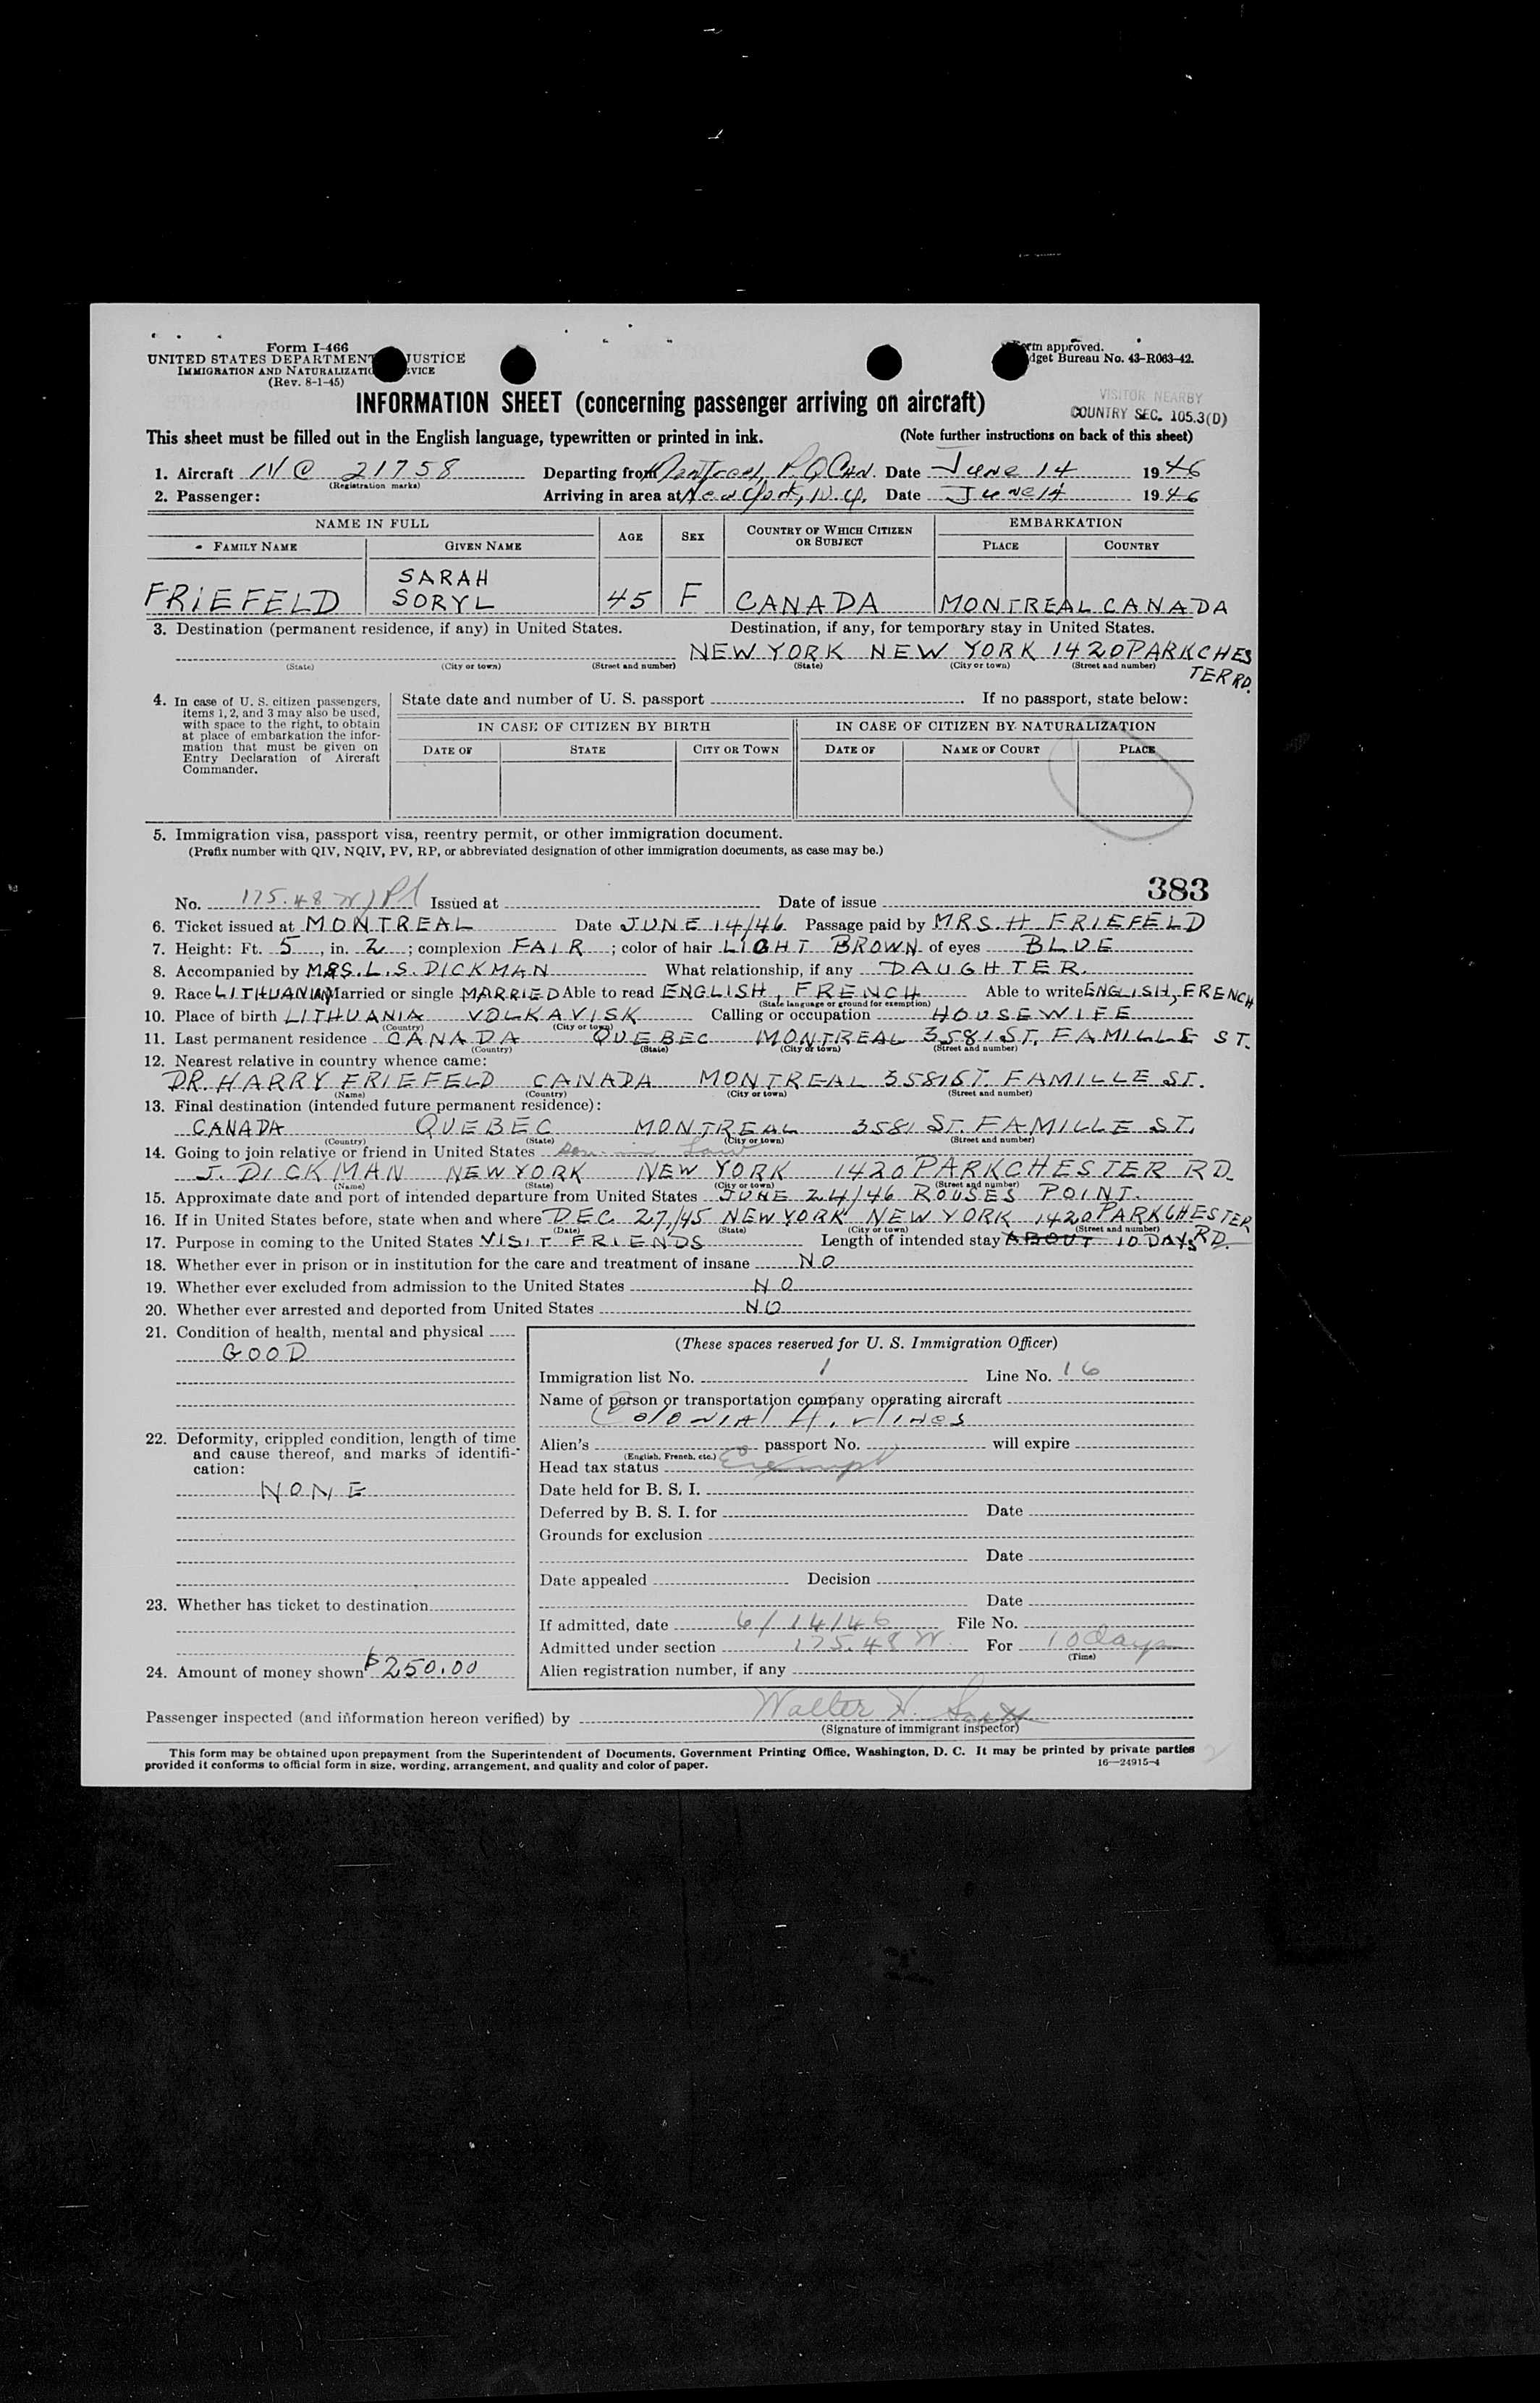 Form I-466
UNITED STATES DEPARTMENT JUSTICE
IMMIGRATION AND NATURALIZATIO VICE
(Rev. 8-1-45)
rm approved.
dget Bureau No. 43-R063-42.
INFORMATION SHEET (concerning passenger arriving on aircraft)
VISITOR NEARBY
COUNTRY SEC. 105.3(D)
This sheet must be filled out in the English language, typewritten or printed in ink. (Note further instructions on back of this sheet)
1. Aircraft NC 21758 Departing from Montreal, P.Q. Can. Date June 14 1946
(Registration marks)
2. Passenger: Arriving in area at New York, N.Y. Date June 14 1946
NAME IN FULL AGE SEX COUNTRY OF WHICH CITIZEN OR SUBJECT EMBARKATION
FAMILY NAME GIVEN NAME PLACE COUNTRY
SARAH
FRIEFELD SORYL 45 F CANADA MONTREAL CANADA
3. Destination (permanent residence, if any) in United States. Destination, if any, for temporary stay in United States.
NEW YORK NEW YORK 1420 PARKCHES
TER RD.
(State) (City or town) (Street and number) (State) (City or town) (Street and number)
4. In case of U. S. citizen passengers, items 1, 2, and 3 may also be used, with space to the right, to obtain at place of embarkation the information that must be given on Entry Declaration of Aircraft Commander.
State date and number of U. S. passport If no passport, state below:
IN CASE OF CITIZEN BY BIRTH IN CASE OF CITIZEN BY NATURALIZATION
DATE OF STATE CITY OR TOWN DATE OF NAME OF COURT PLACE
5. Immigration visa, passport visa, reentry permit, or other immigration document.
(Prefix number with QIV, NQIV, PV, RP, or abbreviated designation of other immigration documents, as case may be.)
383
No. 175.48 Issued at Date of issue
6. Ticket issued at MONTREAL Date JUNE 14/46 Passage paid by MRS. H FRIEFELD
7. Height: Ft. 5, in. 2; complexion FAIR; color of hair LIGHT BROWN of eyes BLUE
8. Accompanied by MRS. L. S. DICKMAN What relationship, if any DAUGHTER.
9. Race LITHUANIAN Married or single MARRIED Able to read ENGLISH, FRENCH Able to write ENGLISH, FRENCH
(State language or ground for exemption)
10. Place of birth LITHUANIA VOLKAVISK Calling or occupation HOUSEWIFE
(Country) (City or town)
11. Last permanent residence CANADA QUEBEC MONTREAL 3581 ST. FAMILLE ST.
(Country) (State) (City or town) (Street and number)
12. Nearest relative in country whence came:
DR. HARRY FRIEFELD CANADA MONTREAL 3581 ST. FAMILLE ST.
(Name) (Country) (City or town) (Street and number)
13. Final destination (intended future permanent residence):
CANADA QUEBEC MONTREAL 3581 ST. FAMILLE ST.
(Country) (State) (City or town) (Street and number)
14. Going to join relative or friend in United States Son-in Law
J. DICKMAN NEW YORK NEW YORK 1420 PARKCHESTER RD.
(Name) (State) (City or town) (Street and number)
15. Approximate date and port of intended departure from United States JUNE 24/46 ROUSES POINT.
16. If in United States before, state when and where DEC. 27/45 NEW YORK NEW YORK 1420 PARKCHESTER RD.
(Date) (State) (City or town) (Street and number)
17. Purpose in coming to the United States VISIT FRIENDS Length of intended stay ABOUT 10 DAYS
18. Whether ever in prison or in institution for the care and treatment of insane NO
19. Whether ever excluded from admission to the United States NO
20. Whether ever arrested and deported from United States NO
21. Condition of health, mental and physical
GOOD
22. Deformity, crippled condition, length of time and cause thereof, and marks of identification:
NONE
23. Whether has ticket to destination
24. Amount of money shown $250.00
(These spaces reserved for U. S. Immigration Officer)
Immigration list No. 1 Line No. 16
Name of person or transportation company operating aircraft
Colonial Airlines
Alien's passport No. will expire
(English, French, etc.)
Head tax status Exempt
Date held for B. S. I.
Deferred by B. S. I. for Date
Grounds for exclusion
Date
Date appealed Decision
Date
If admitted, date 6/14/46 File No.
Admitted under section 175.48 For 10 days
(Time)
Alien registration number, if any
Passenger inspected (and information hereon verified) by Walter
(Signature of immigrant inspector)
This form may be obtained upon prepayment from the Superintendent of Documents, Government Printing Office, Washington, D. C. It may be printed by private parties
provided it conforms to official form in size, wording, arrangement, and quality and color of paper.
16—24915-4